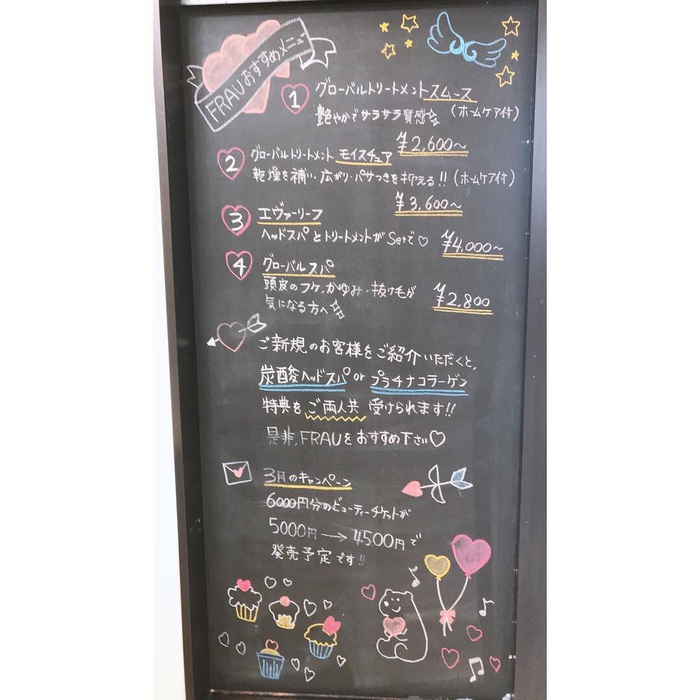 FRAUおすすめメニュー
1 グローバルトリートメントスムース
艶やかでサラサラ質感 (ホームケア付)
¥2,600〜
2 グローバルトリートメント モイスチュア
乾燥を補い、広がり・パサつきを抑える!! (ホームケア付)
¥3,600〜
3 エヴァーリーフ
ヘッドスパとトリートメントがSetで♡ ¥4,000〜
4 グローバルスパ
頭皮のフケ、かゆみ・抜け毛が
気になる方へ ¥2,800
ご新規のお客様をご紹介いただくと、
炭酸ヘッドスパ or プラチナコラーゲン
特典を ご両人共 受けられます!!
是非、FRAUをおすすめ下さい♡
3月のキャンペーン
6000円分のビューティーチケットが
5000円→4500円で
発売予定です!!